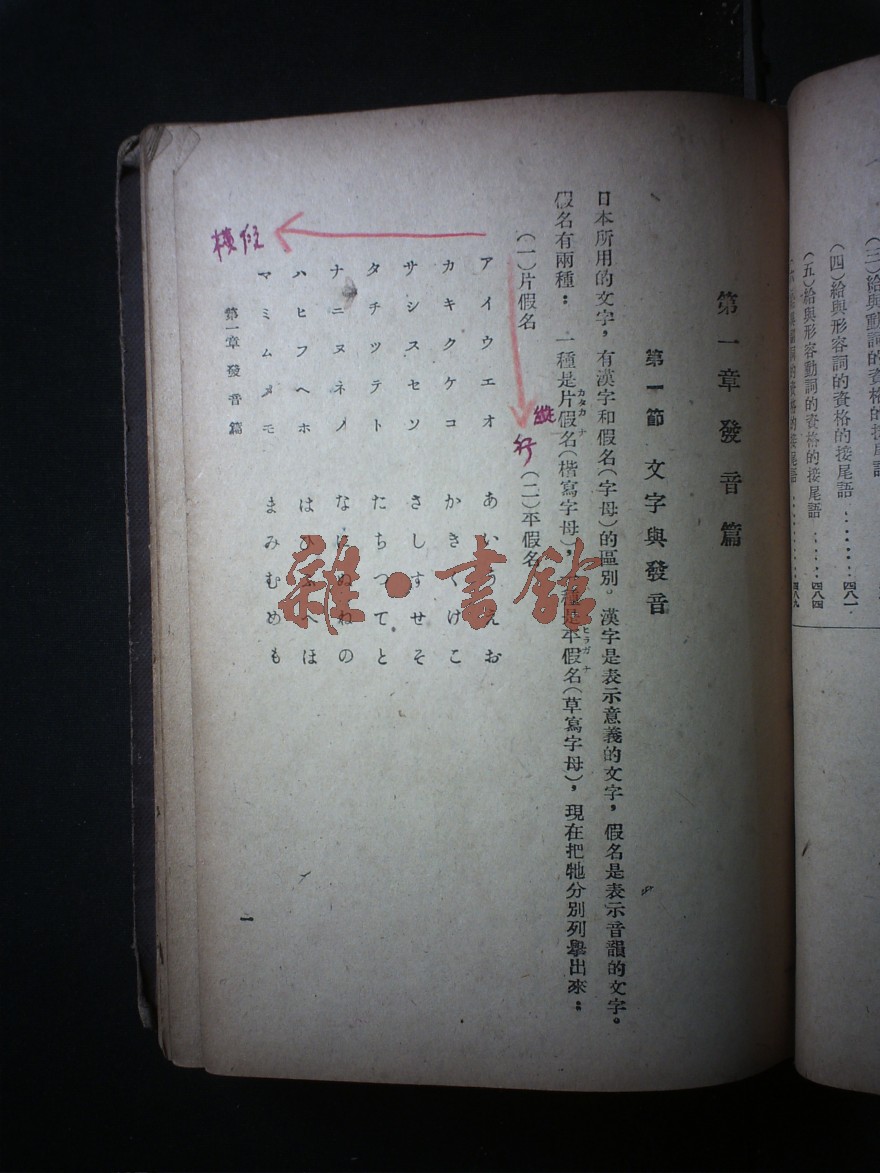 (三)給與動詞的資格的接尾語
(四)給與形容詞的資格的接尾語……四八一
(五)給與形容動詞的資格的接尾語……四八四
第一章 發音篇
第一節 文字與發音
日本所用的文字，有漢字和假名(字母)的區別。漢字是表示意義的文字，假名是表示音韻的文字。
假名有兩種：一種是片假名(楷寫字母)，一種是平假名(草寫字母)，現在把牠分別列舉出來：
カタカナ
ヒラガナ
(一)片假名
(二)平假名
縱
行
アイウエオ
あいうえお
カキクケコ
かきくけこ
サシスセソ
さしすせそ
タチツテト
たちつてと
ナニヌネノ
なにぬねの
ハヒフヘホ
はひふへほ
マミムメモ
まみむめも
第一章 發音篇
一
雜·書館